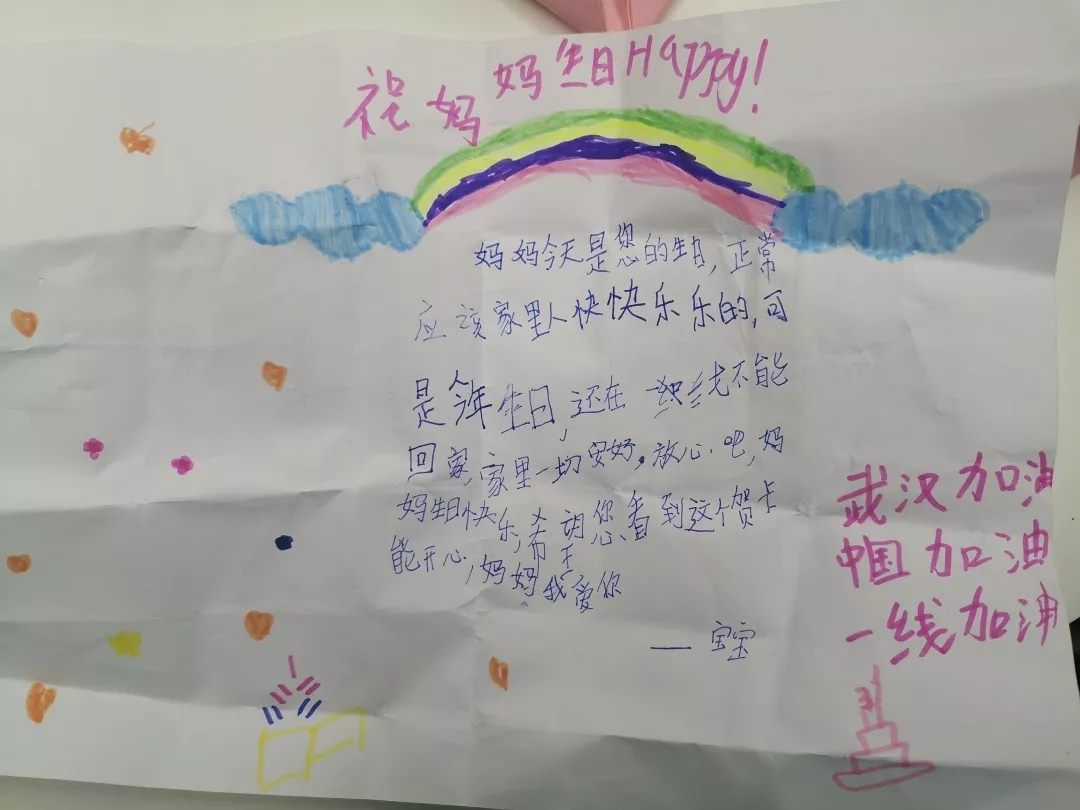 祝妈妈生日Happy!
妈妈今天是您的生日,正常
应该家里人快快乐乐的,可
是今年生日,还在一线不能
回家,家里一切安好。放心吧,妈
妈生日快乐,希望您看到这个贺卡
能开心,妈妈我爱你
——宝宝
武汉加油
中国加油
一线加油